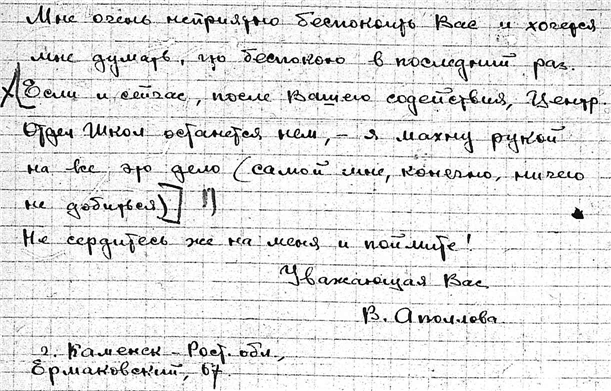 Мне очень неприятно беспокоить Вас и хочется
мне думать, что беспокою в последний раз.
Если и сейчас, после Вашего содействия, Центр.
Отдел Школ останется нем, – я махну рукой
на все это дело (самой мне, конечно, ничего
не добиться)]
Не сердитесь же на меня и поймите!
Уважающая Вас
В. Аполлова
г. Каменск – Рост. обл.,
Ермаковский, 67